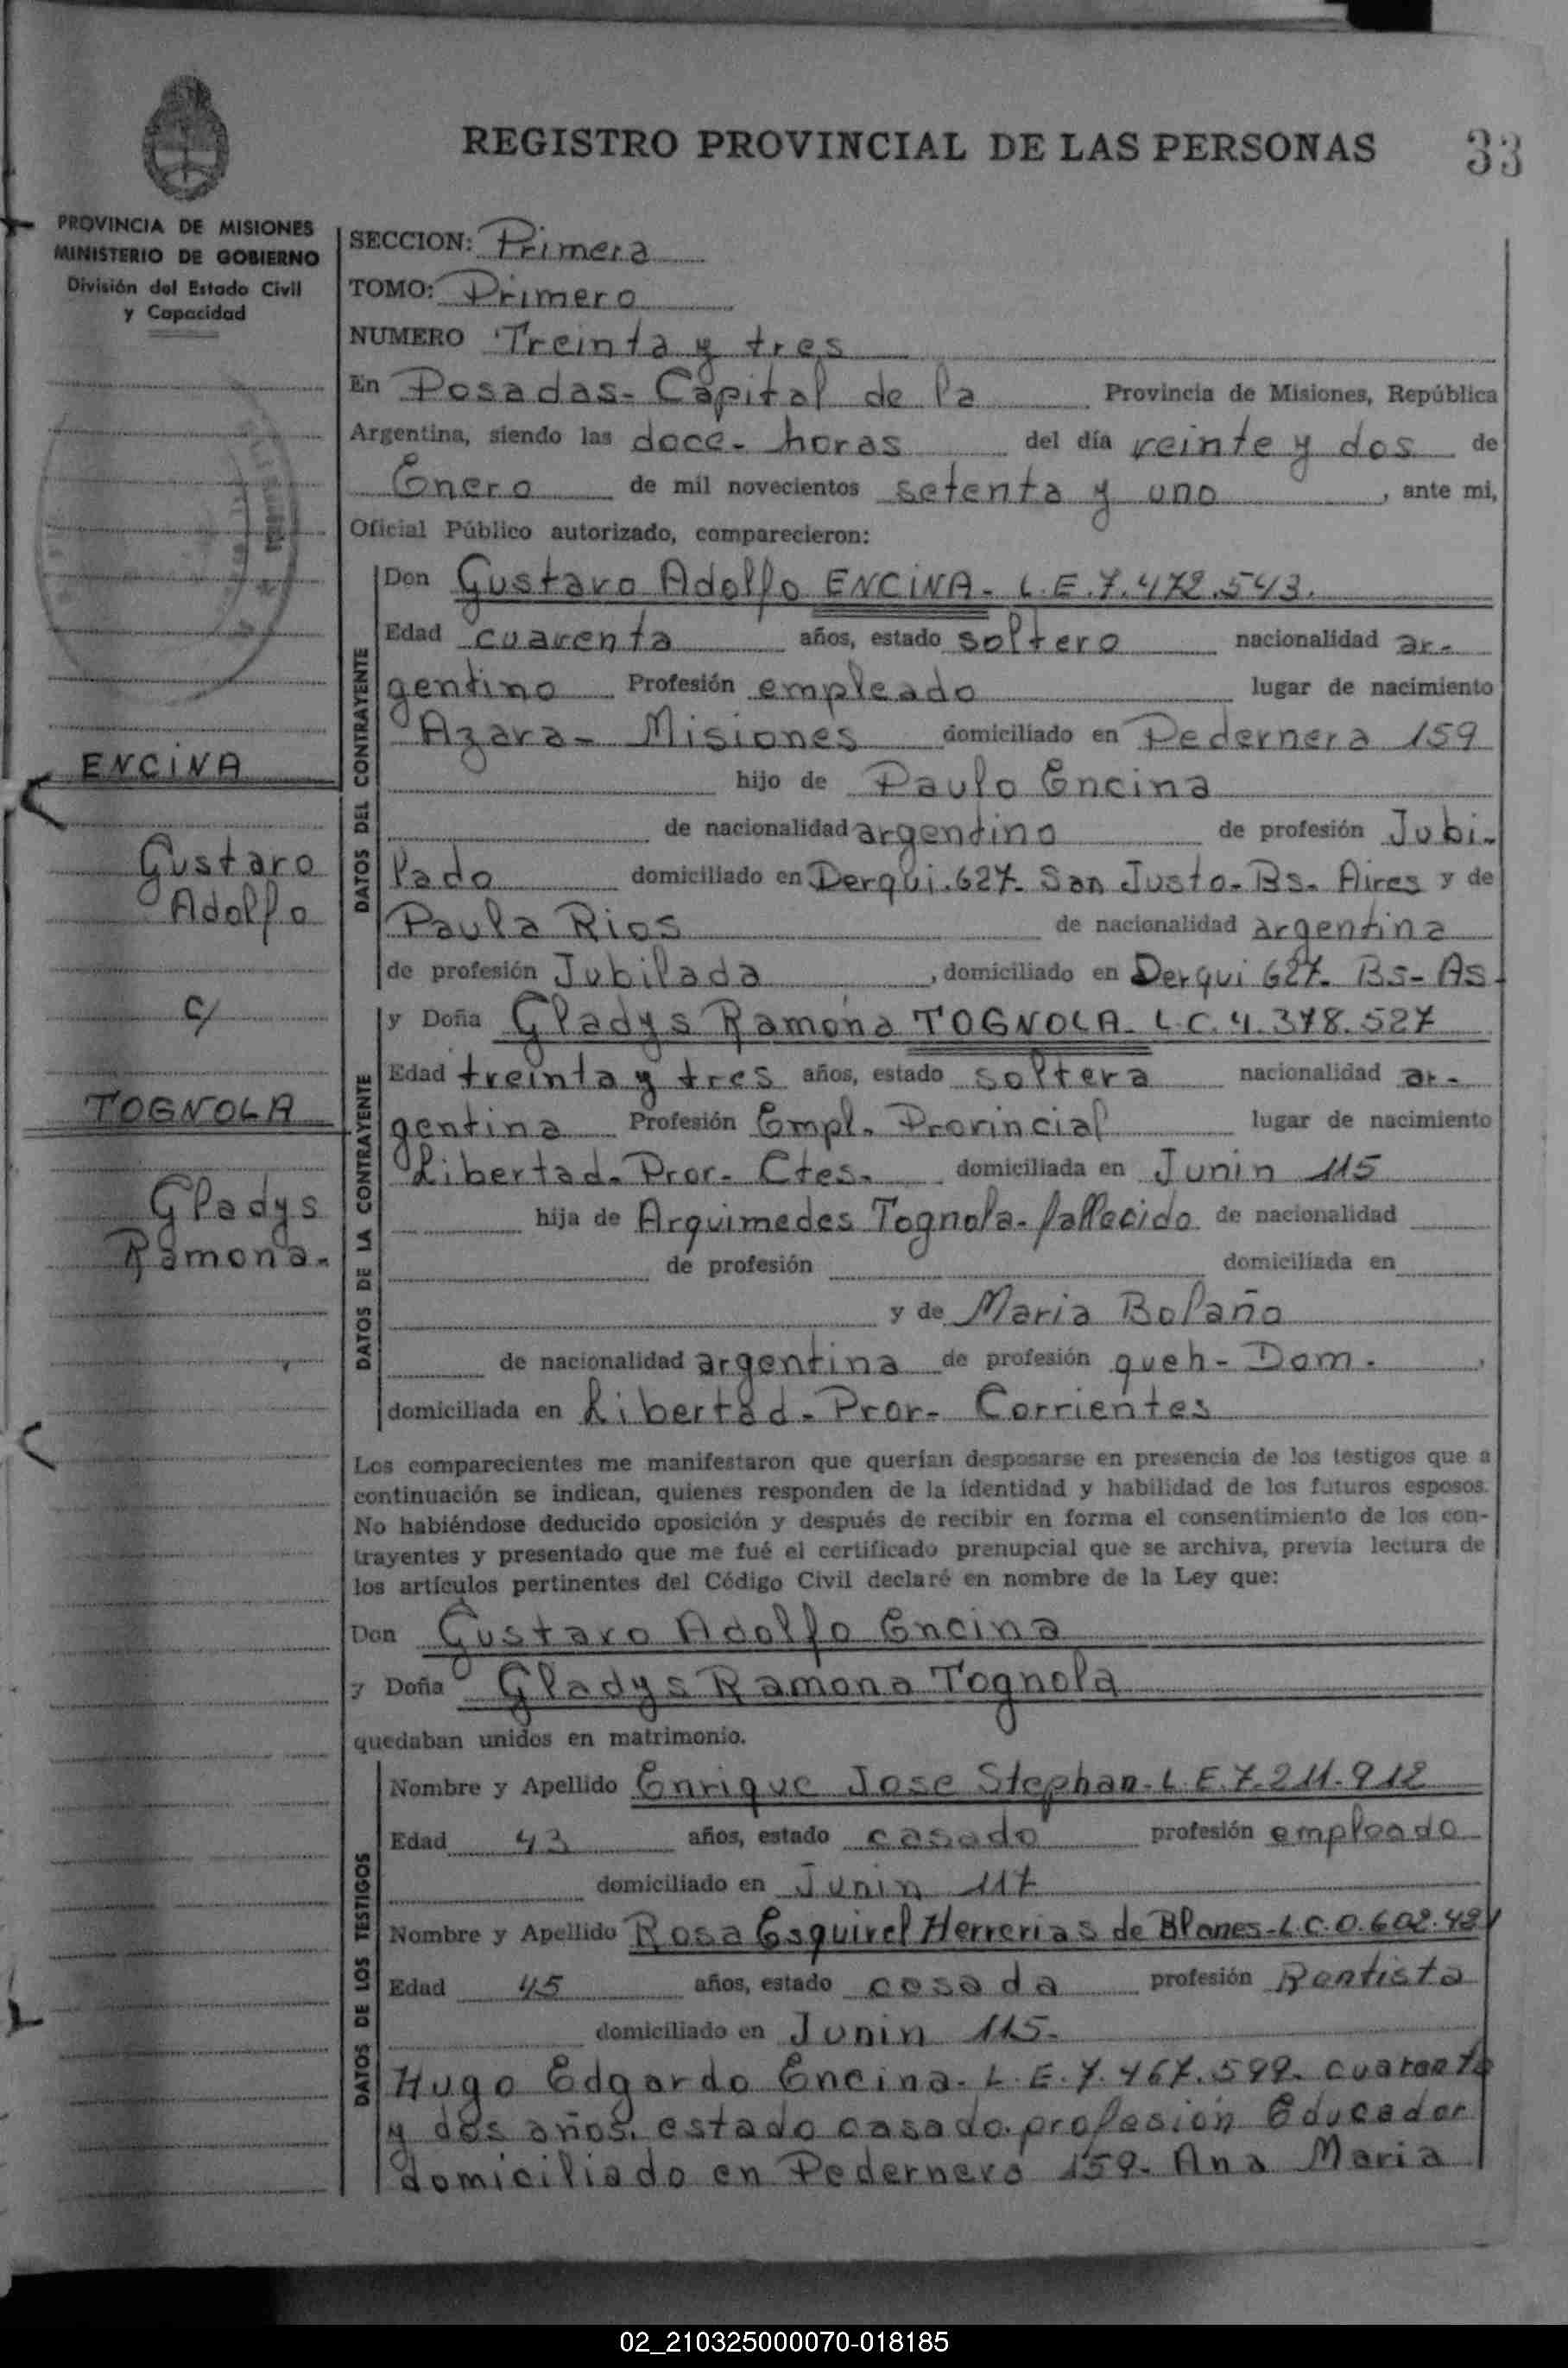 REGISTRO PROVINCIAL DE LAS PERSONAS 33
PROVINCIA DE MISIONES
MINISTERIO DE GOBIERNO
División del Estado Civil
y Capacidad
SECCION: Primera
TOMO: Primero
NUMERO Treinta y tres
En Posadas- Capital de la Provincia de Misiones, República
Argentina, siendo las doce- horas del día veinte y dos de
Enero de mil novecientos setenta y uno, ante mi,
Oficial Público autorizado, comparecieron:
DATOS DEL CONTRAYENTE
Don Gustavo Adolfo ENCINA- L.E.7.472.543.
Edad cuarenta años, estado soltero nacionalidad ar-
gentino Profesión empleado lugar de nacimiento
Azara- Misiones domiciliado en Pedernera 159
hijo de Paulo Encina
de nacionalidad argentino de profesión Jubi-
lado domiciliado en Derqui.627- San Justo- Bs- Aires y de
Paula Rios de nacionalidad argentina
de profesión Jubilada, domiciliado en Derqui 627- Bs- As-
ENCINA
Gustavo
Adolfo
c/
TOGNOLA
Gladys
Ramona-
DATOS DE LA CONTRAYENTE
y Doña Gladys Ramona TOGNOLA- L.C.4.378.527
Edad treinta y tres años, estado soltera nacionalidad ar-
gentina Profesión Empl. Provincial lugar de nacimiento
Libertad- Prov- Ctes- domiciliada en Junin 115
hija de Arquimedes Tognola- fallecido de nacionalidad
de profesión domiciliada en
y de Maria Bolaño
de nacionalidad argentina de profesión queh- Dom.,
domiciliada en Libertad- Prov- Corrientes
Los comparecientes me manifestaron que querían desposarse en presencia de los testigos que a
continuación se indican, quienes responden de la identidad y habilidad de los futuros esposos.
No habiéndose deducido oposición y después de recibir en forma el consentimiento de los con-
trayentes y presentado que me fué el certificado prenupcial que se archiva, previa lectura de
los artículos pertinentes del Código Civil declaré en nombre de la Ley que:
Don Gustavo Adolfo Encina
y Doña Gladys Ramona Tognola
quedaban unidos en matrimonio.
DATOS DE LOS TESTIGOS
Nombre y Apellido Enrique Jose Stephan- L.E.7.211.912
Edad 43 años, estado casado profesión empleado
domiciliado en Junin 117
Nombre y Apellido Rosa Esquivel Herrerias de Blanes- L.C.0.602.421
Edad 45 años, estado casada profesión Rentista
domiciliado en Junin 115-
Hugo Edgardo Encina- L.E.7.467.599- cuarenta
y dos años. estado casado. profesión Educador
domiciliado en Pedernera 159- Ana Maria
02_210325000070-018185